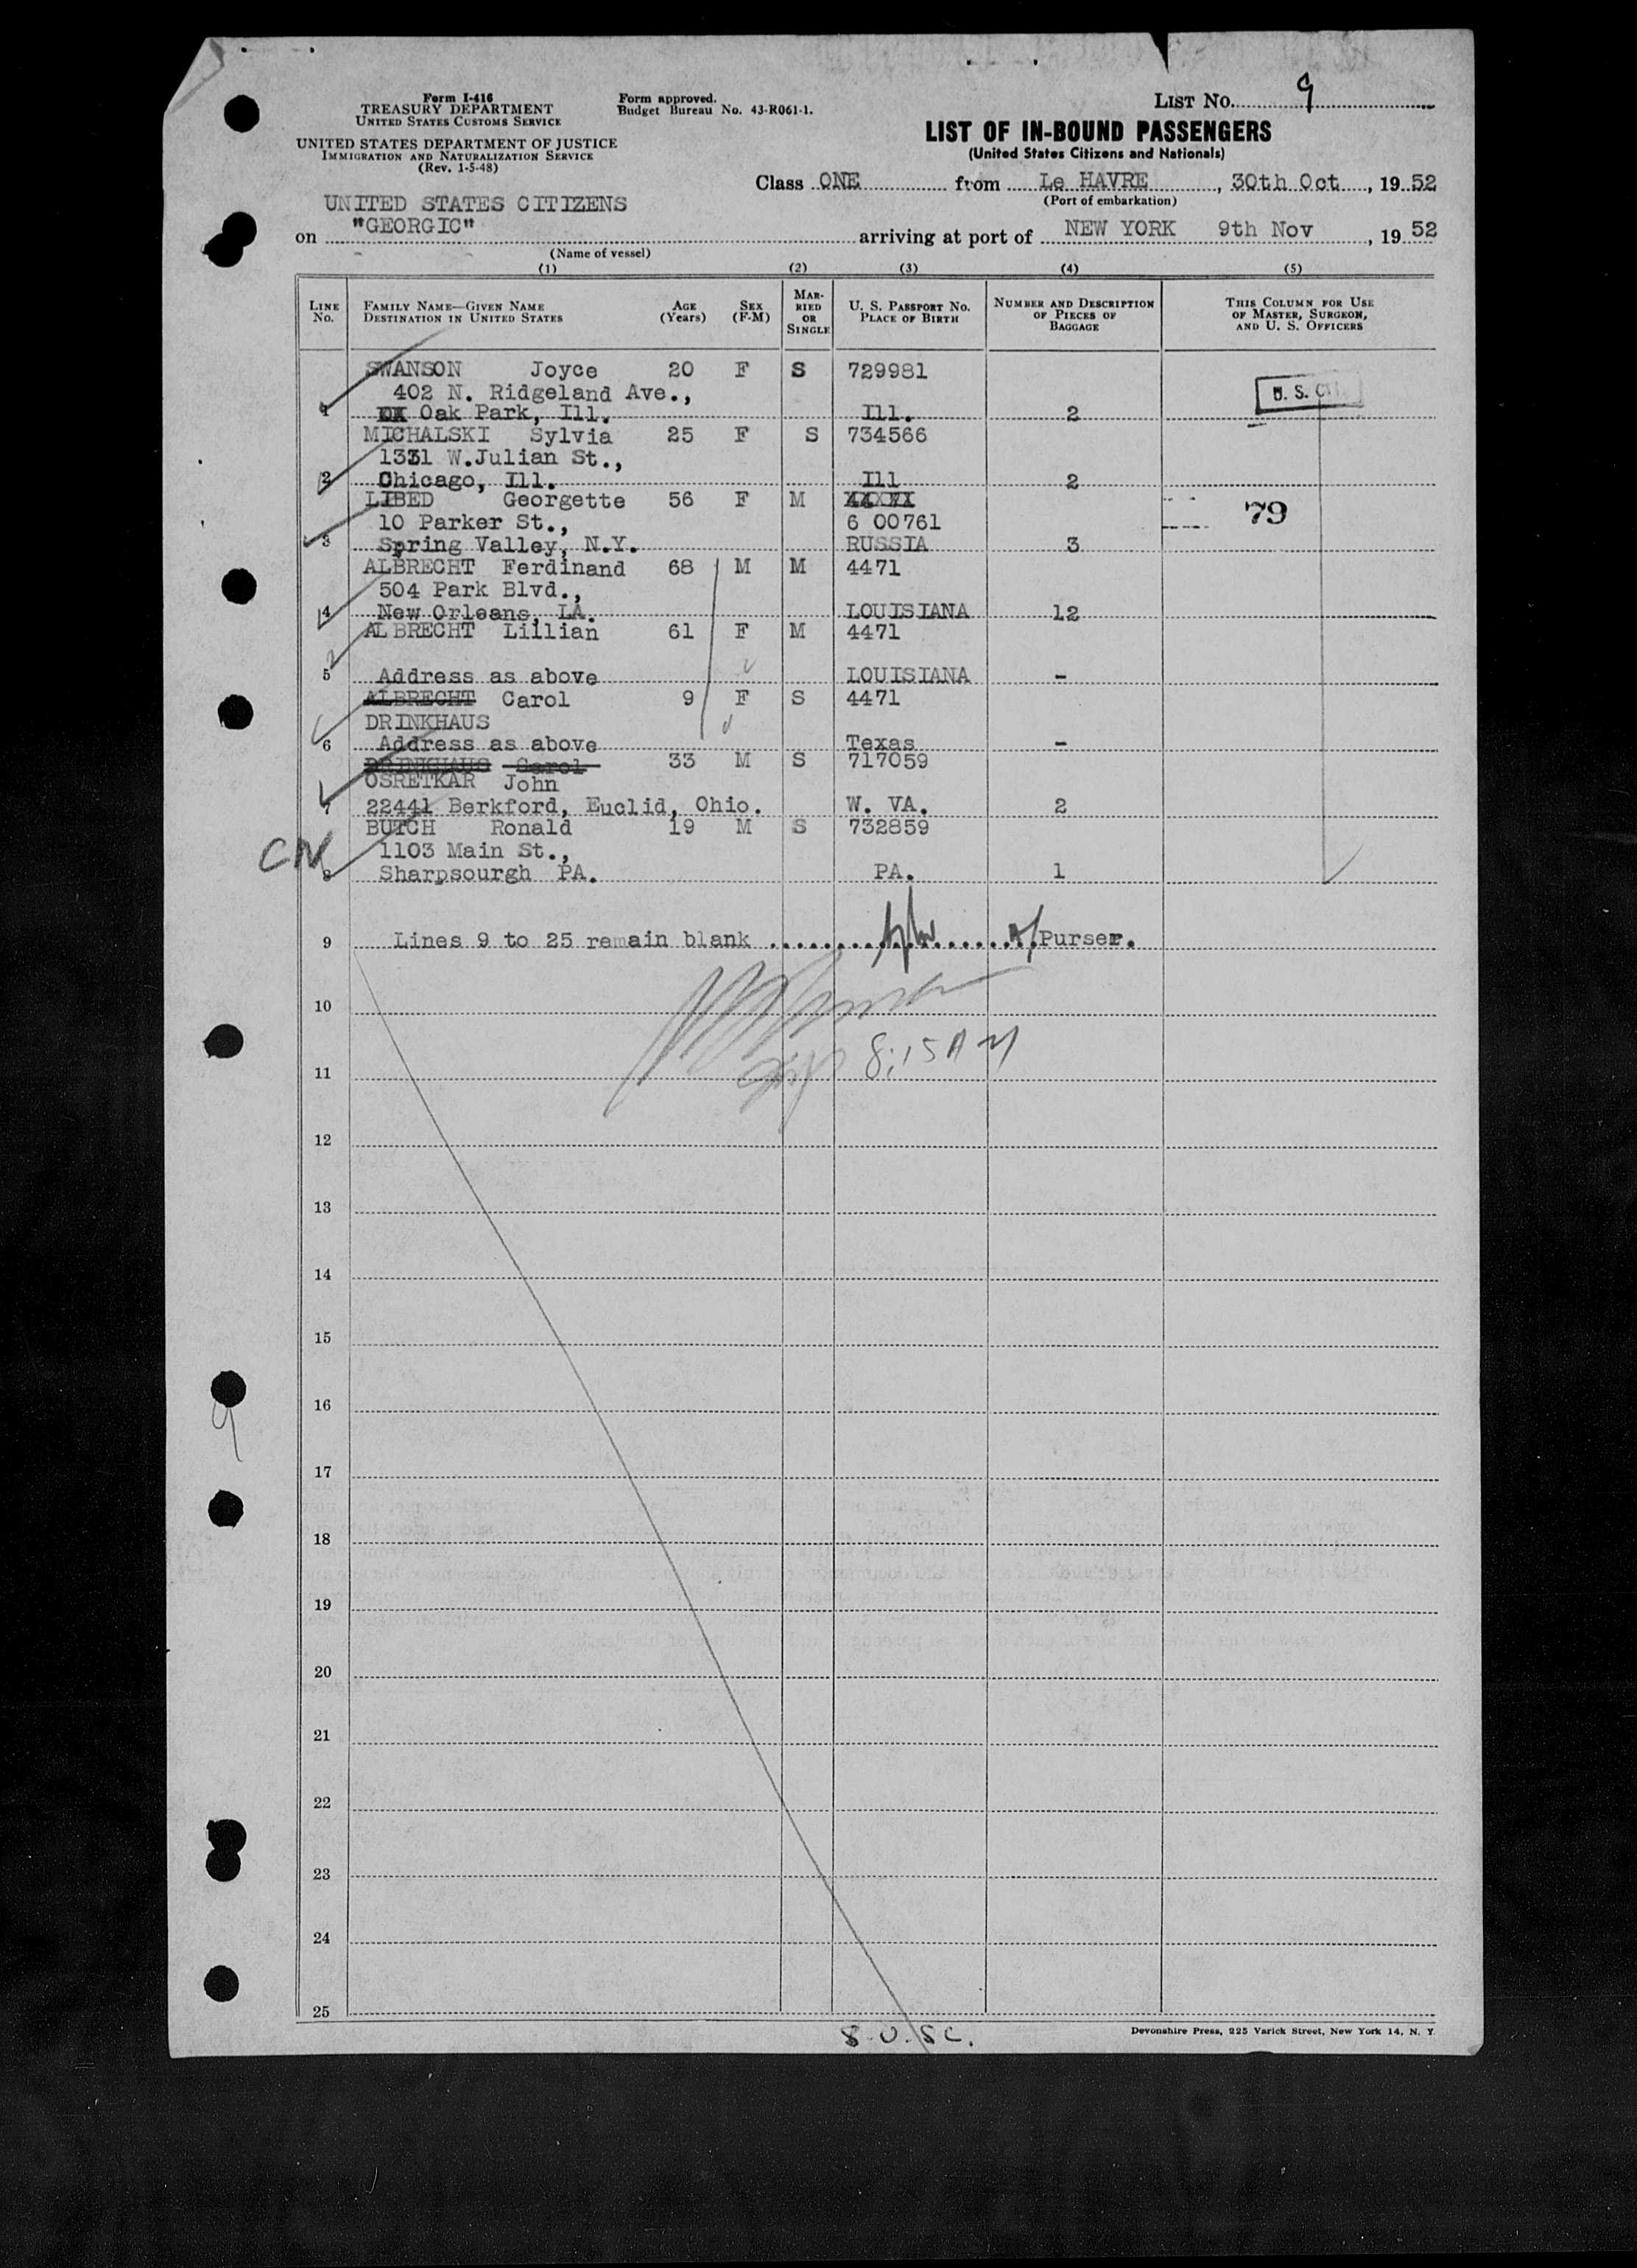 Form I-416
TREASURY DEPARTMENT
UNITED STATES CUSTOMS SERVICE
UNITED STATES DEPARTMENT OF JUSTICE
IMMIGRATION AND NATURALIZATION SERVICE
(Rev. 1-5-48)
Form approved.
Budget Bureau No. 43-R061-1.
LIST NO. 9
LIST OF IN-BOUND PASSENGERS
(United States Citizens and Nationals)
Class ONE from Le HAVRE, 30th Oct, 19 52
(Port of embarkation)
UNITED STATES CITIZENS
on "GEORGIC" arriving at port of NEW YORK 9th Nov, 19 52
(Name of vessel)
(1) (2) (3) (4) (5)
LINE NO. FAMILY NAME—GIVEN NAME DESTINATION IN UNITED STATES AGE (Years) SEX (F-M) MARRIED OR SINGLE U. S. PASSPORT NO. PLACE OF BIRTH NUMBER AND DESCRIPTION OF PIECES OF BAGGAGE THIS COLUMN FOR USE OF MASTER, SURGEON, AND U. S. OFFICERS
SWANSON Joyce 20 F S 729981
402 N. Ridgeland Ave.,
1 Oak Park, Ill. Ill. 2
U. S. CIT.
MICHALSKI Sylvia 25 F S 734566
1331 W.Julian St.,
2 Chicago, Ill. Ill 2
LIBED Georgette 56 F M
10 Parker St., 6 00761
79
3 Spring Valley, N.Y. RUSSIA 3
ALBRECHT Ferdinand 68 M M 4471
504 Park Blvd.,
4 New Orleans, LA. LOUISIANA 12
ALBRECHT Lillian 61 F M 4471
5 Address as above LOUISIANA -
ALBRECHT Carol 9 F S 4471
DRINKHAUS
6 Address as above Texas -
DRINKHAUS Carol 33 M S 717059
OSRETKAR John
7 22441 Berkford, Euclid, Ohio. W. VA. 2
BUTCH Ronald 19 M S 732859
CN 1103 Main St.,
8 Sharpsourgh PA. PA. 1
9 Lines 9 to 25 remain blank Purser.
10
8:15 AM
11
12
13
14
15
16
9
17
18
19
20
21
22
23
24
25
8 U.S.C.
Devonshire Press, 225 Varick Street, New York 14, N. Y.